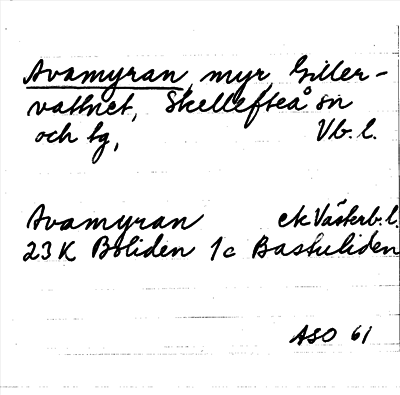 Avamyran, myr, Giller-
vattnet, Skellefteå sn
och tg, Vb. l.
Avamyran ek Västerb. l.
23 K Boliden 1c Bastuliden
ASO 61